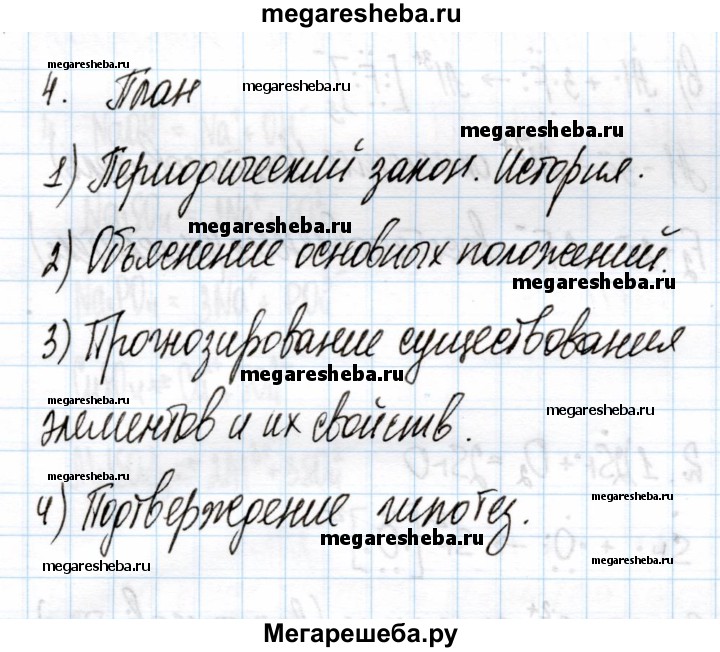 megaresheba.ru
megaresheba.ru
megaresheba.ru
4. План
megaresheba.ru
1) Периодический закон. История.
megaresheba.ru
2) Объяснение основных положений.
megaresheba.ru
3) Прогнозирование существования
megaresheba.ru
megaresheba.ru
megaresheba.ru
элементов и их свойств.
megaresheba.ru
megaresheba.ru
4) Подтверждение гипотез.
megaresheba.ru
megaresheba.ru
megaresheba.ru
Мегарешеба.ру